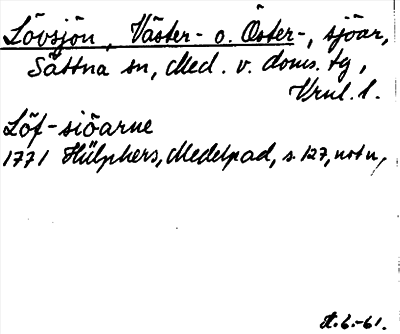 Lövsjön, Väster- o. Öster-, sjöar,
Sättna sn, Med. v. doms. tg,
Vrnl. l.
Löf-siöarne
1771 Hülphers, Medelpad, s. 127, not n,